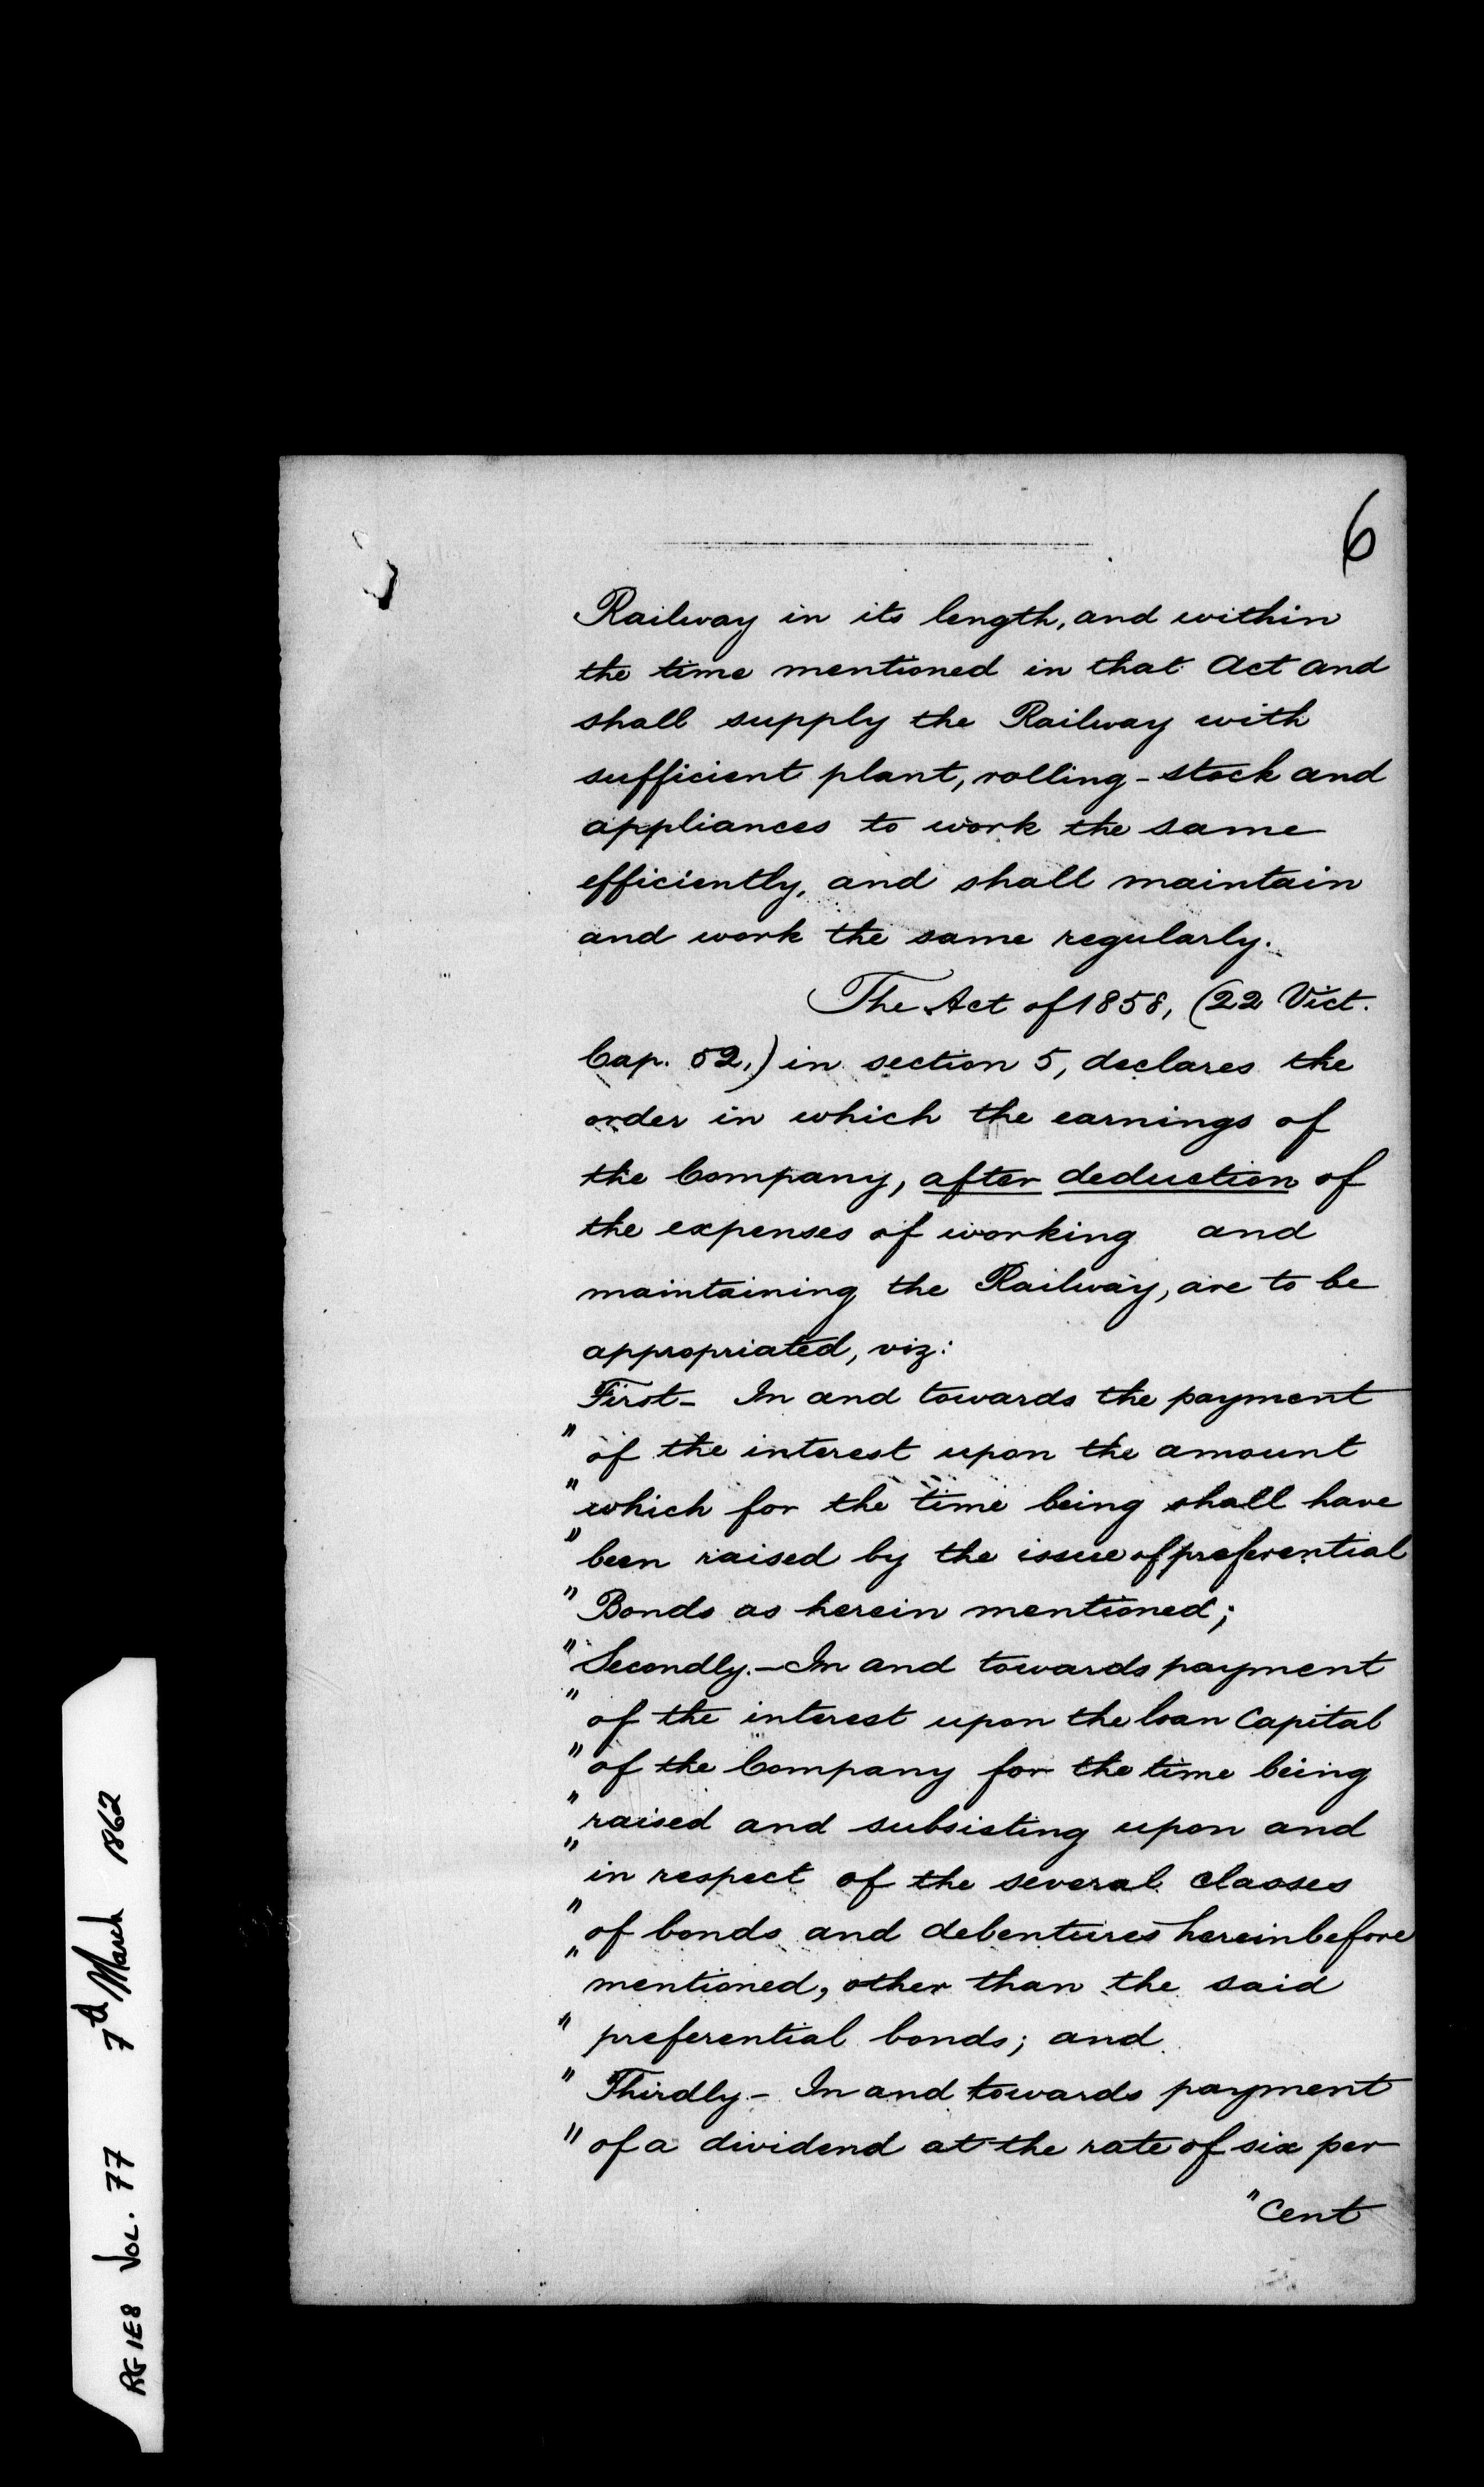 6
Railway in its length, and within
the time mentioned in that Act and
shall supply the Railway with
sufficient plant, rolling-stock and
appliances to work the same
efficiently, and shall maintain
and work the same regularly.
The Act of 1858, (22 Vict.
Cap. 52.) in section 5, declares the
order in which the earnings of
the Company, after deduction of
the expenses of working and
maintaining the Railway, are to be
appropriated, viz:
First - In and towards the payment
" of the interest upon the amount
" which for the time being shall have
" been raised by the issue of preferential
" Bonds as herein mentioned;
" Secondly. - In and towards payment
" of the interest upon the loan Capital
" of the Company for the time being
" raised and subsisting upon and
" in respect of the several classes
" of bonds and debentures hereinbefore
" mentioned, other than the said
" preferential bonds; and
" Thirdly - In and towards payment
" of a dividend at the rate of six per
" Cent
RG 1E8 VOL. 77 7th March 1862